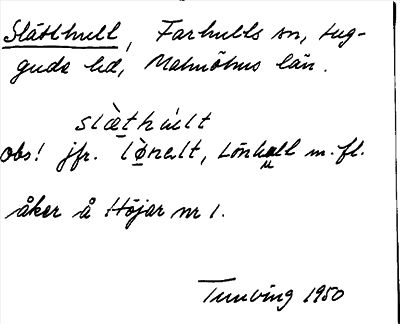 Slätthult, Farhults sn, Lug-
guda hd, Malmöhus län.
slæ̀thúlt
obs! jfr. lø̀nalt, Lönhult m. fl.
åker å Höjar nr 1.
Tunving 1950